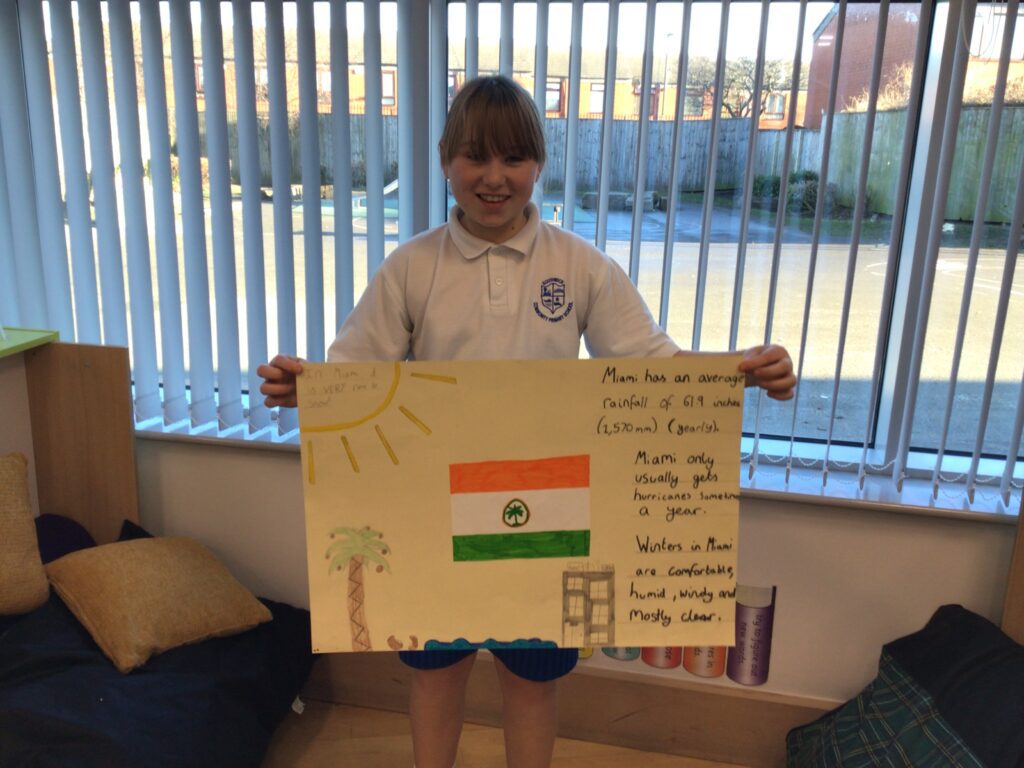 In Miami it
is VERY rare to
snow
Miami has an average
rainfall of 61.9 inches
(1,570 mm) (yearly).
Miami only
usually gets
hurricanes sometime
a year.
Winters in Miami
are comfortable,
humid, windy and
Mostly clear.
COMMUNITY PRIMARY SCHOOL
try to figure out
new words